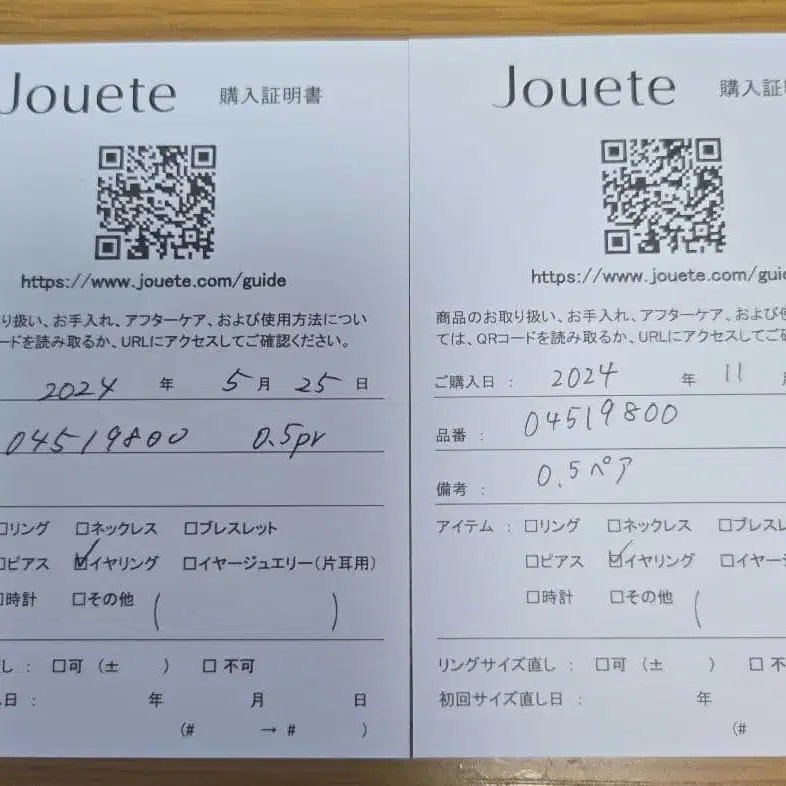 Jouete 購入証明書
https://www.jouete.com/guide
り扱い、お手入れ、アフターケア、および使用方法につい
ードを読み取るか、URLにアクセスしてご確認ください。
2024 年 5月 25日
04519800 0.5pr
□リング □ネックレス □ブレスレット
□ピアス ☑イヤリング □イヤージュエリー(片耳用)
□時計 □その他 ( )
し : □可 (± ) □ 不可
日 : 年 月 日
(# → # )
Jouete 購入証
https://www.jouete.com/gui
商品のお取り扱い、お手入れ、アフターケア、および
ては、QRコードを読み取るか、URLにアクセスしてご
ご購入日 : 2024 年 11
品番 : 04519800
備考 : 0.5ペア
アイテム : □リング □ネックレス □ブレス
□ピアス ☑イヤリング □イヤー
□時計 □その他 (
リングサイズ直し : □可 (± ) □ 不
初回サイズ直し日 : 年
(#